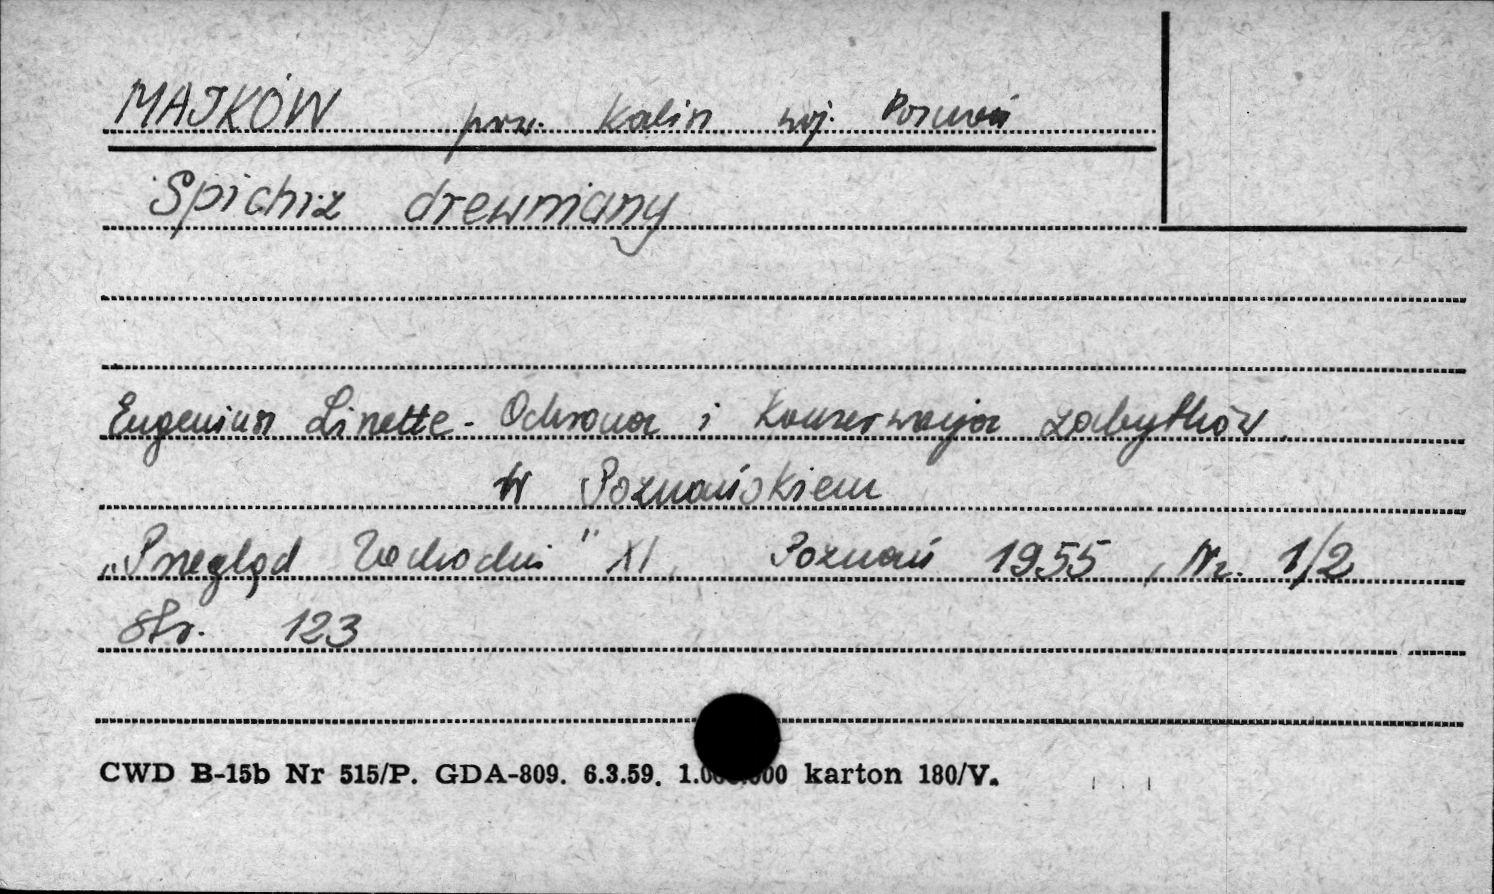 MAJKÓW pow. Kalisz woj. Poznań
Spichrz drewniany
Eugeniusz Linette - Ochrona i konserwacja zabytków
w Poznańskiem
„Przegląd Zachodni" XI, Poznań 1955, Nr. 1/2
str. 123
CWD B-15b Nr 515/P. GDA-809. 6.3.59. 1.000.000 karton 180/V.